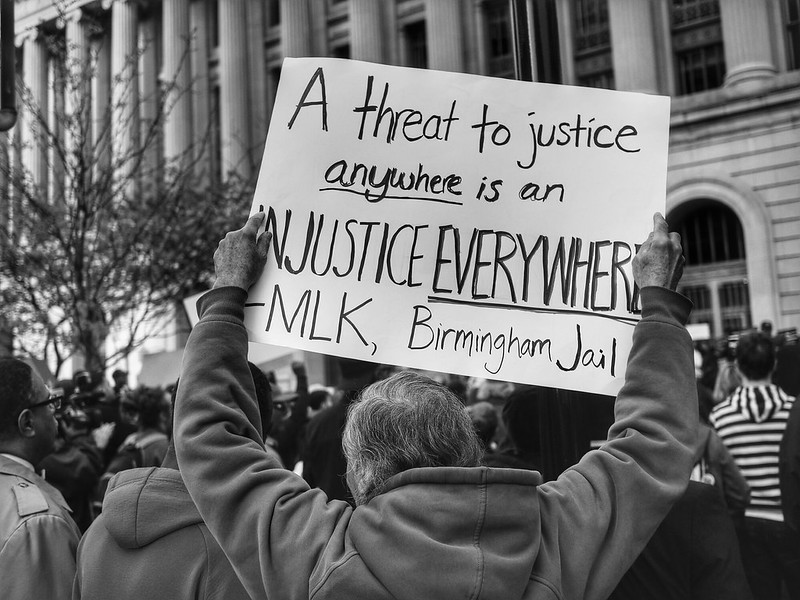 A threat to justice
anywhere is an
INJUSTICE EVERYWHERE
-MLK, Birmingham Jail